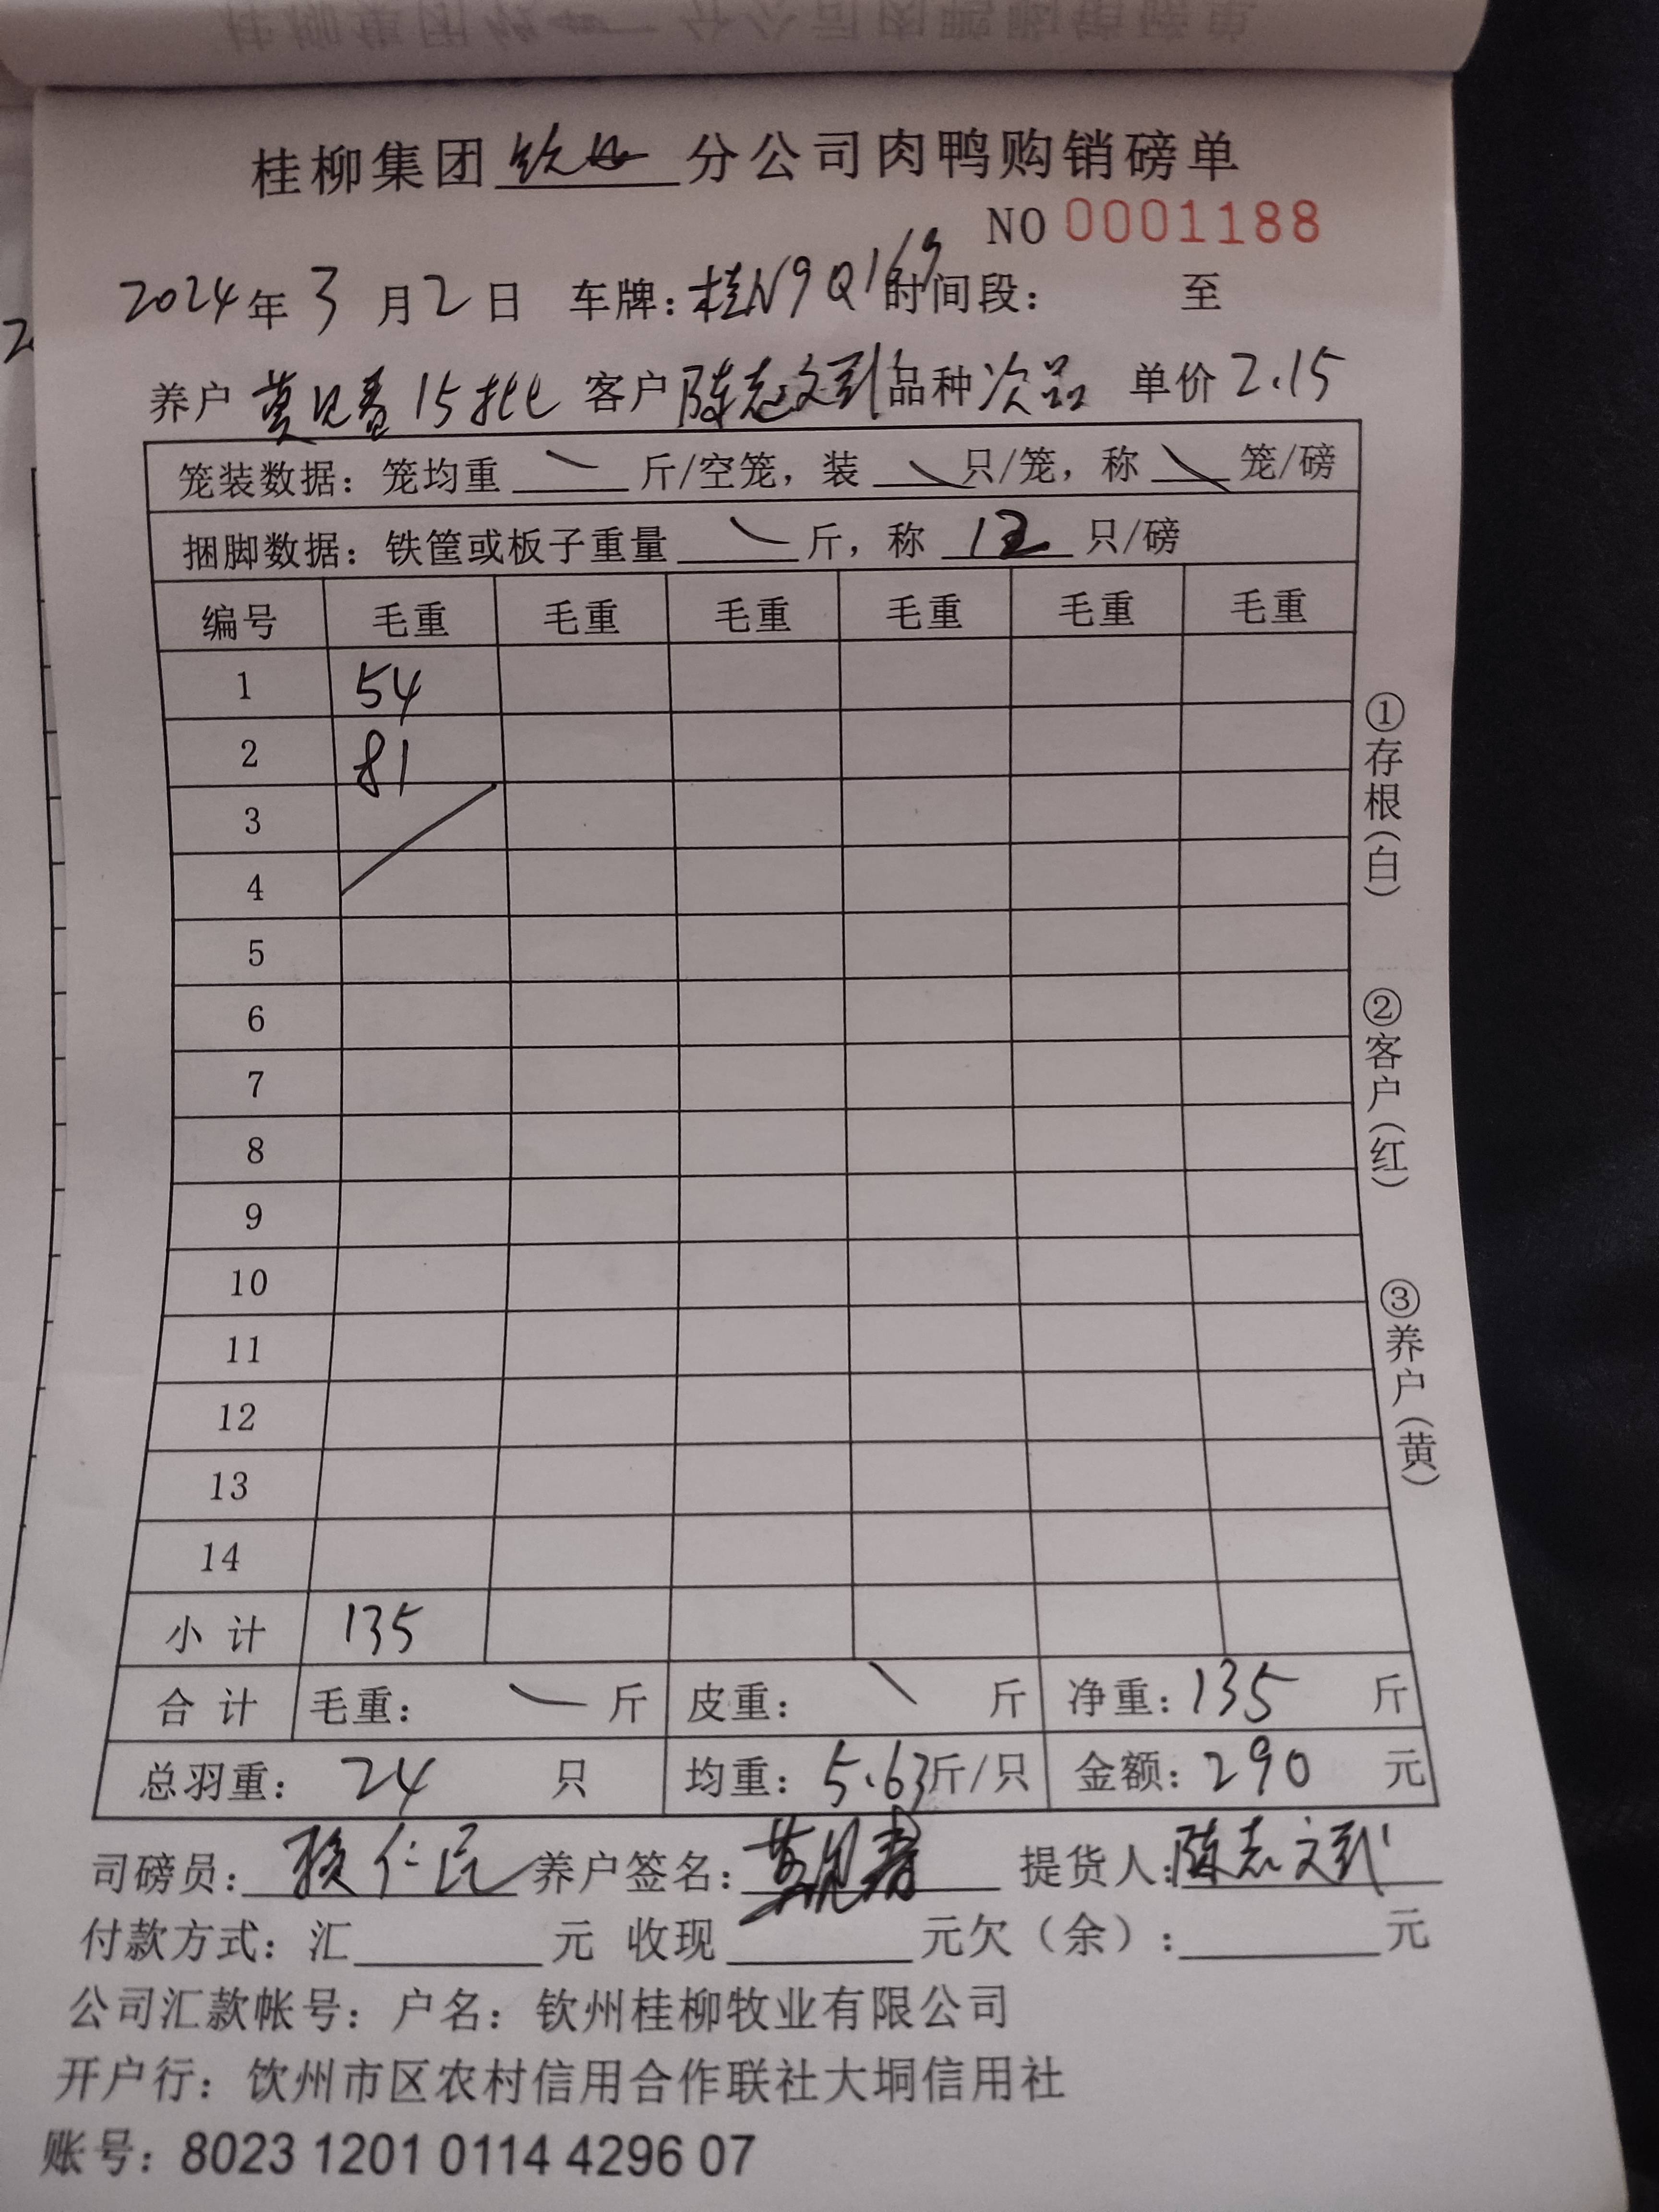 桂柳集团钦州分公司肉鸭购销磅单
NO 0001188
2024年3月2日 车牌:桂N9Q169时间段: 至
养户 莫见春15批 客户 陈志文到 品种 次品 单价 2.15
笼装数据:笼均重 斤/空笼,装 只/笼,称 笼/磅
捆脚数据:铁筐或板子重量 斤,称 12 只/磅
编号 毛重 毛重 毛重 毛重 毛重 毛重
1 54
2 81
3
4
5
6
7
8
9
10
11
12
13
14
小计 135
合计 毛重: 斤 皮重: 斤 净重:135 斤
总羽重: 24 只 均重:5.63斤/只 金额:290 元
司磅员: 仁民 养户签名:莫见春 提货人:陈志文到
付款方式:汇 元 收现 元欠(余): 元
公司汇款帐号:户名:钦州桂柳牧业有限公司
开户行:钦州市区农村信用合作联社大垌信用社
账号:8023 1201 0114 4296 07
①存根(白)
②客户(红)
③养户(黄)